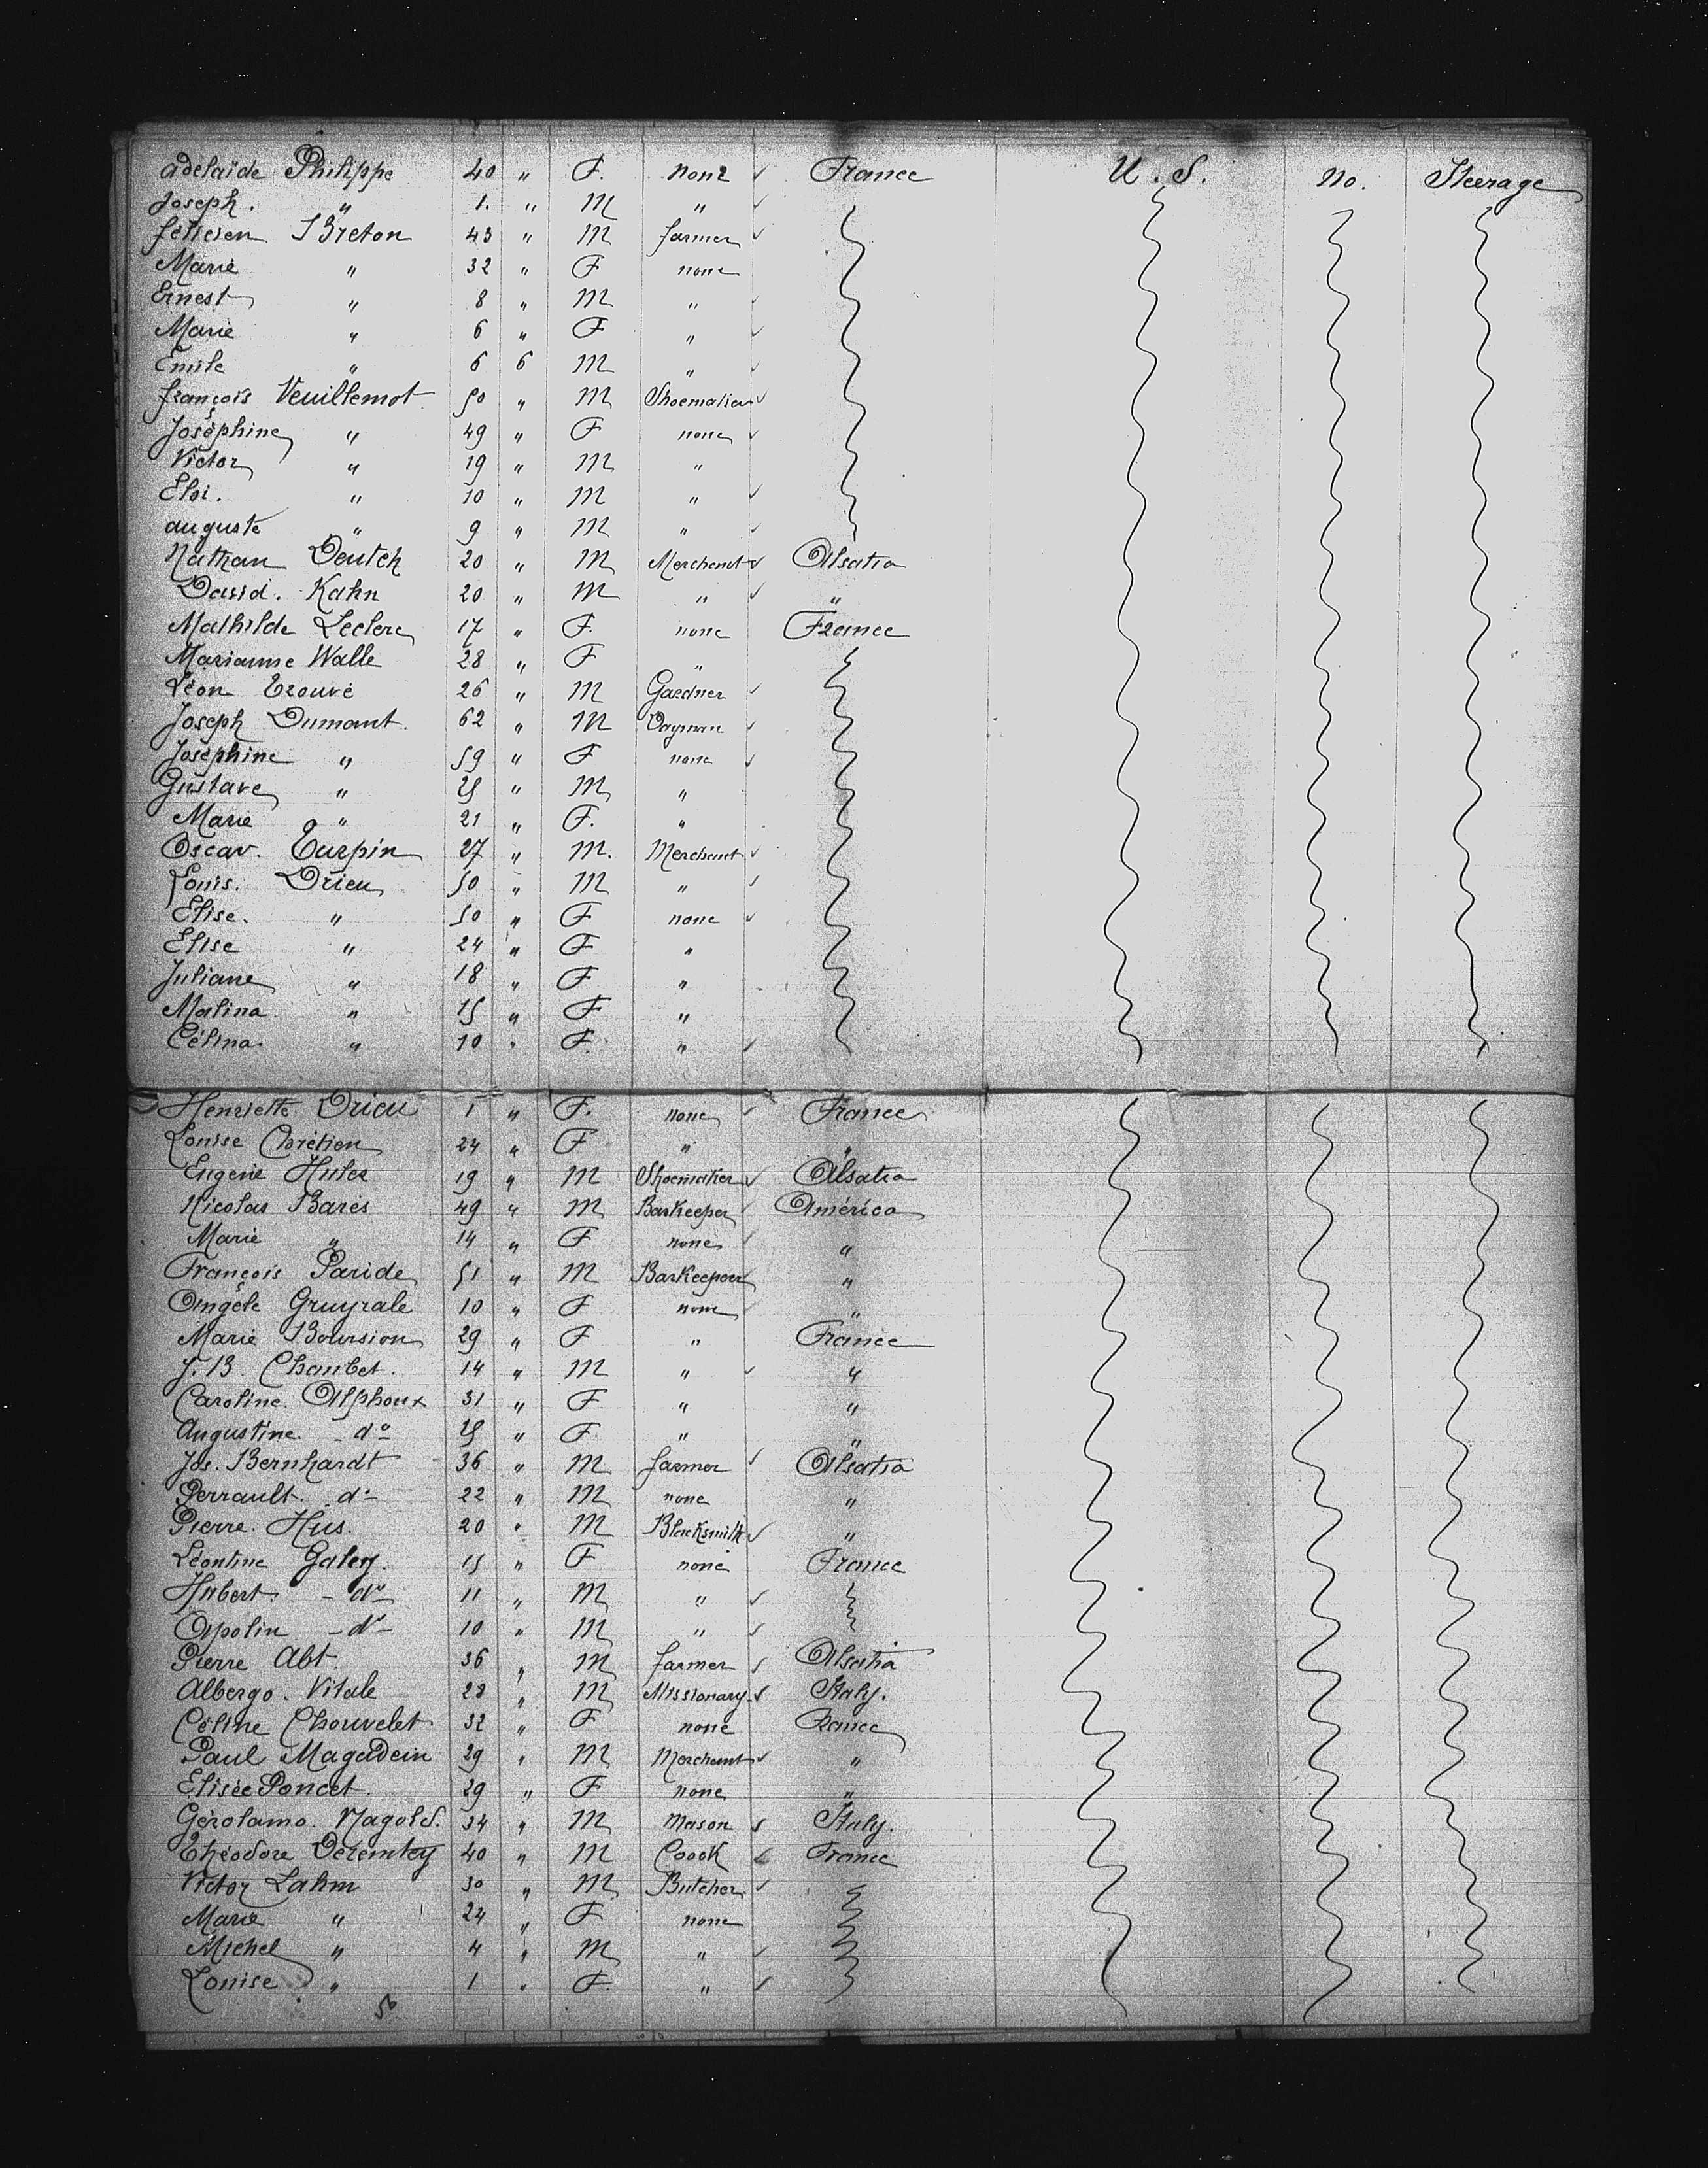 Adelaïde Philippe 40 " F. none ✓ France U. S. no. Steerage
Joseph. " 1. " M " ✓
félicien Breton 43 " M farmer ✓
Marie " 32 " F none
Ernest " 8 " M " ✓
Marie " 6 " F " ✓
Emile " 6 6 M " ✓
françois Veuillemot 50 " M Shoemaker ✓
Joséphine " 49 " F none ✓
Victor " 19 " M "
Eloi. " 10 " M " ✓
auguste " 9 " M " ✓
Nathan Deutch 20 " M Merchant ✓ Alsatia
David. Kahn 20 " M " ✓ "
Mathilde Leclerc 17 " F. none France
Marianne Walle 28 " F "
Léon Trouvé 26 " M Gardner ✓
Joseph Dumont 62 " M Dayman ✓
Joséphine " 59 " F none ✓
Gustave " 25 " M "
Marie " 21 " F. "
Oscar. Turpin 27 " M. Merchant ✓
Louis. Drieu 50 " M " ✓
Elise. " 50 " F none ✓
Elise " 24 " F "
Juliane " 18 " F "
Malina " 15 " F "
Célina. " 10 " F. " ✓
Henriette Drieu 1 " F. none ✓ France
Louise Chrétien 24 " F " "
Eugene Huler 19 " M Shoemaker ✓ Alsatia
Nicolas Barès 49 " M Barkeeper ✓ América
Marie " 14 " F none ✓ "
François Paride 51 " M Barkeeper ✓ "
Angèle Gruyrale 10 " F none ✓ "
Marie Boursion 29 " F " France
J. B. Chaubet. 14 " M " ✓ "
Caroline. Alphoux 31 " F " "
Augustine. - do 25 " F " "
Jos. Bernhardt 36 " M farmer ✓ Alsatia
Perrault. do - 22 " M none "
Pierre. Hus. 20 " M Blacksmith ✓ "
Léontine Galey. 15 " F none France
Hubert. - do - 11 " M " ✓
Apolin - do - 10 " M " ✓
Pierre Abt. 36 " M farmer ✓ Alsatia
Albergo. Vitale 28 " M Missionary ✓ Italy.
Céline Chouvelet 32 " F none France
Paul Magadein 29 " M Merchant ✓ "
Elisée Poncet. 29 " F none "
Gérolamo. Nagold. 34 " M Mason ✓ Italy.
Théodore 40 " M Coook ✓ France
Victor Lahm 30 " M Butcher ✓
Marie " 24 " F none
Michel " 4 " M " ✓
Louise " 1 " F. " ✓
56